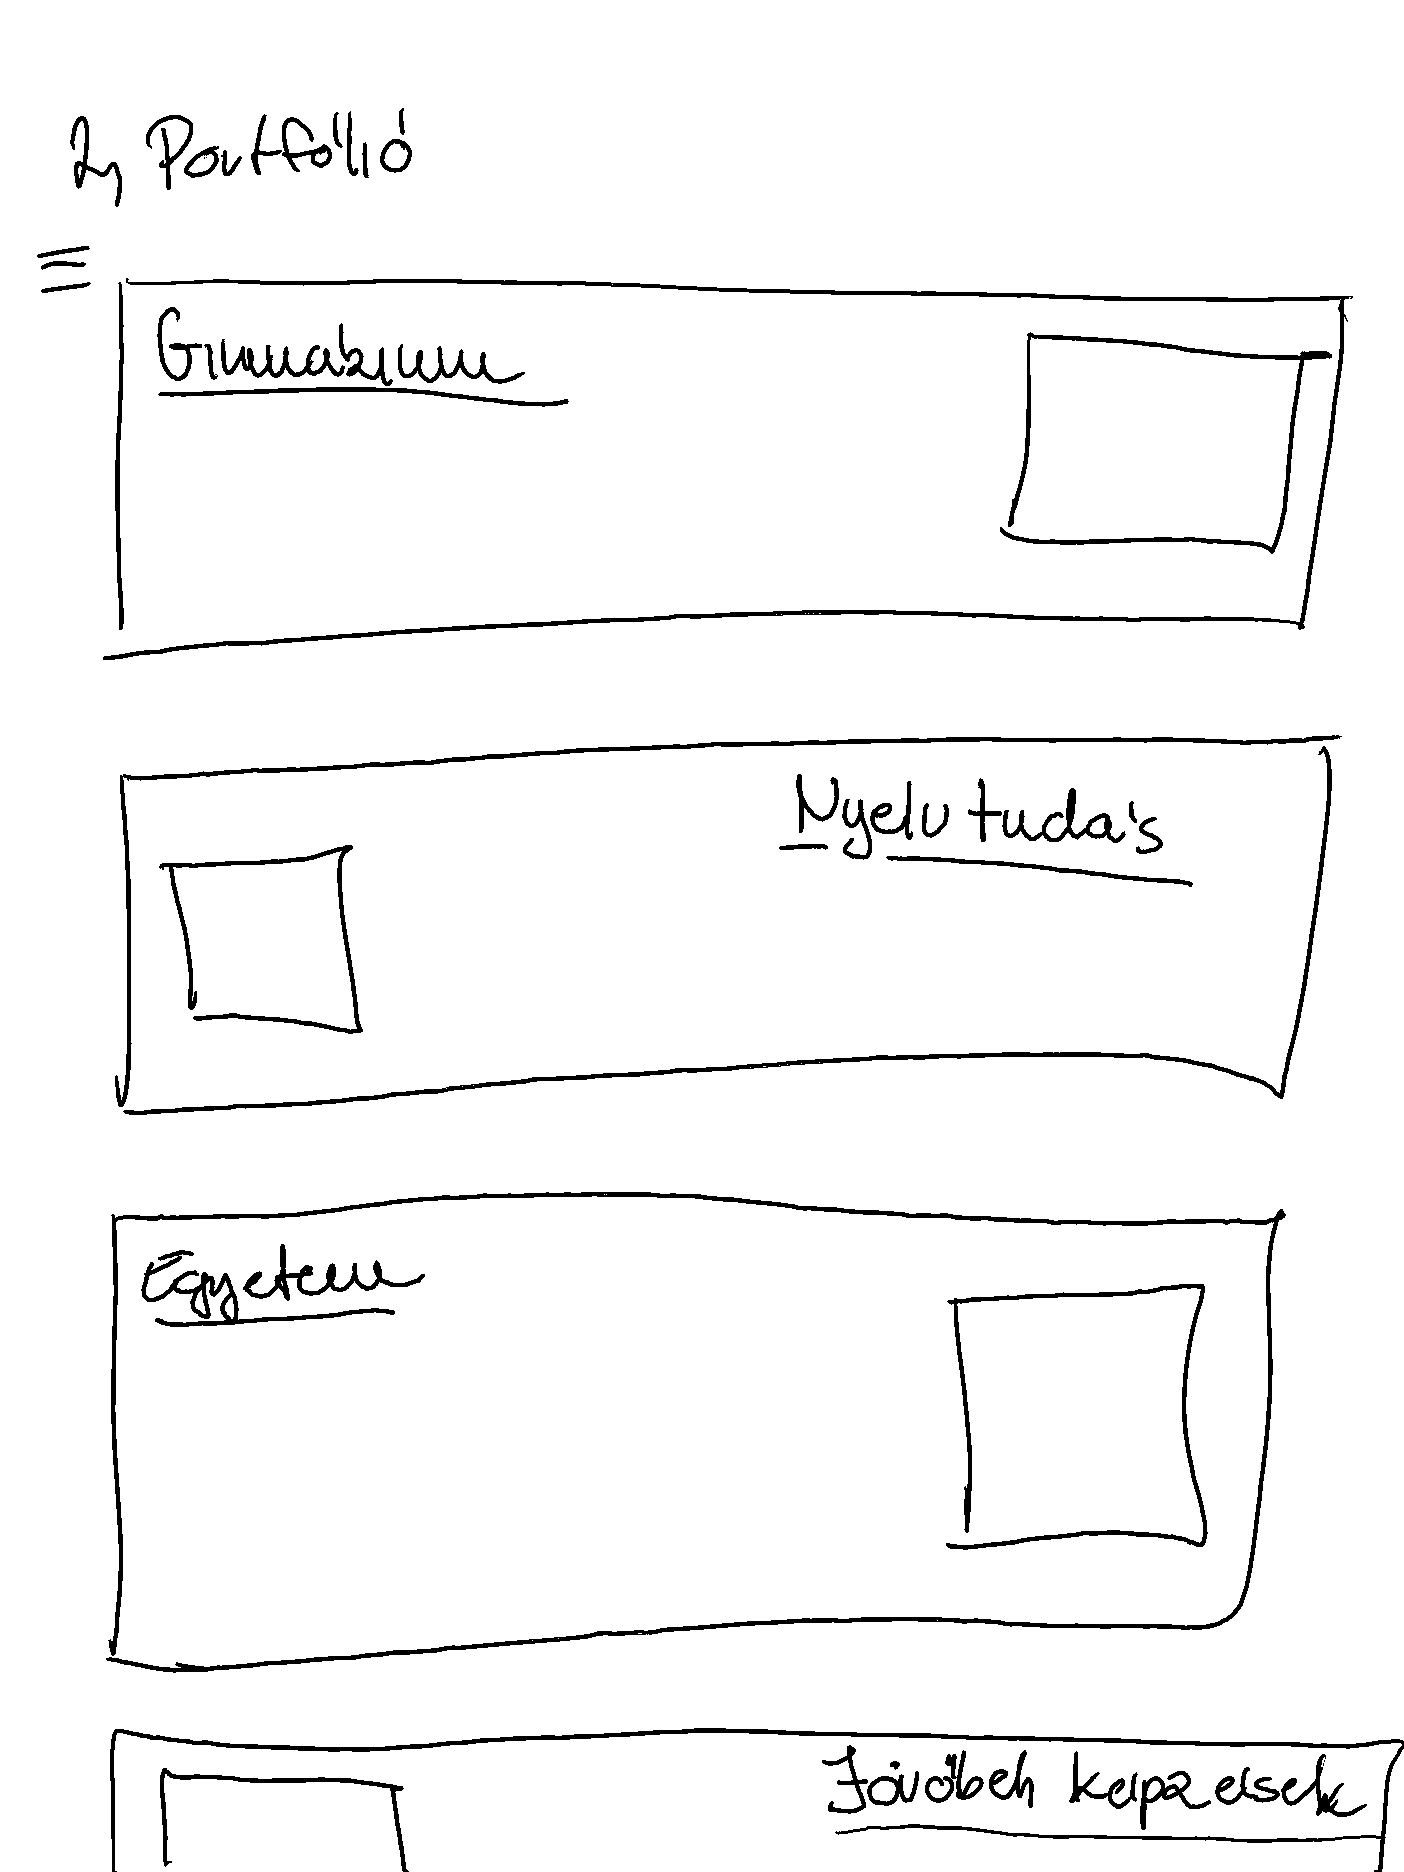 2, Portfólió
Gimnázium
Nyelvtudás
Egyetem
Jövőbeli képzések